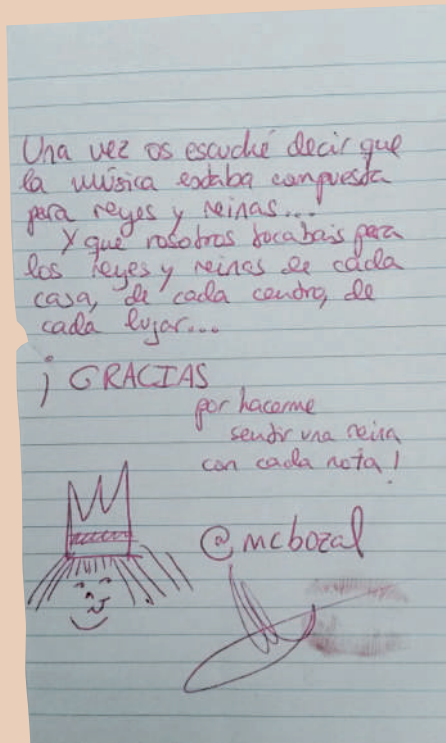 Una vez os escuché decir que
la música estaba compuesta
para reyes y reinas...
Y que vosotros tocabais para
los reyes y reinas de cada
casa, de cada centro, de
cada lugar...
¡ GRACIAS
por hacerme
sentir una reina
con cada nota!
@mcbozal